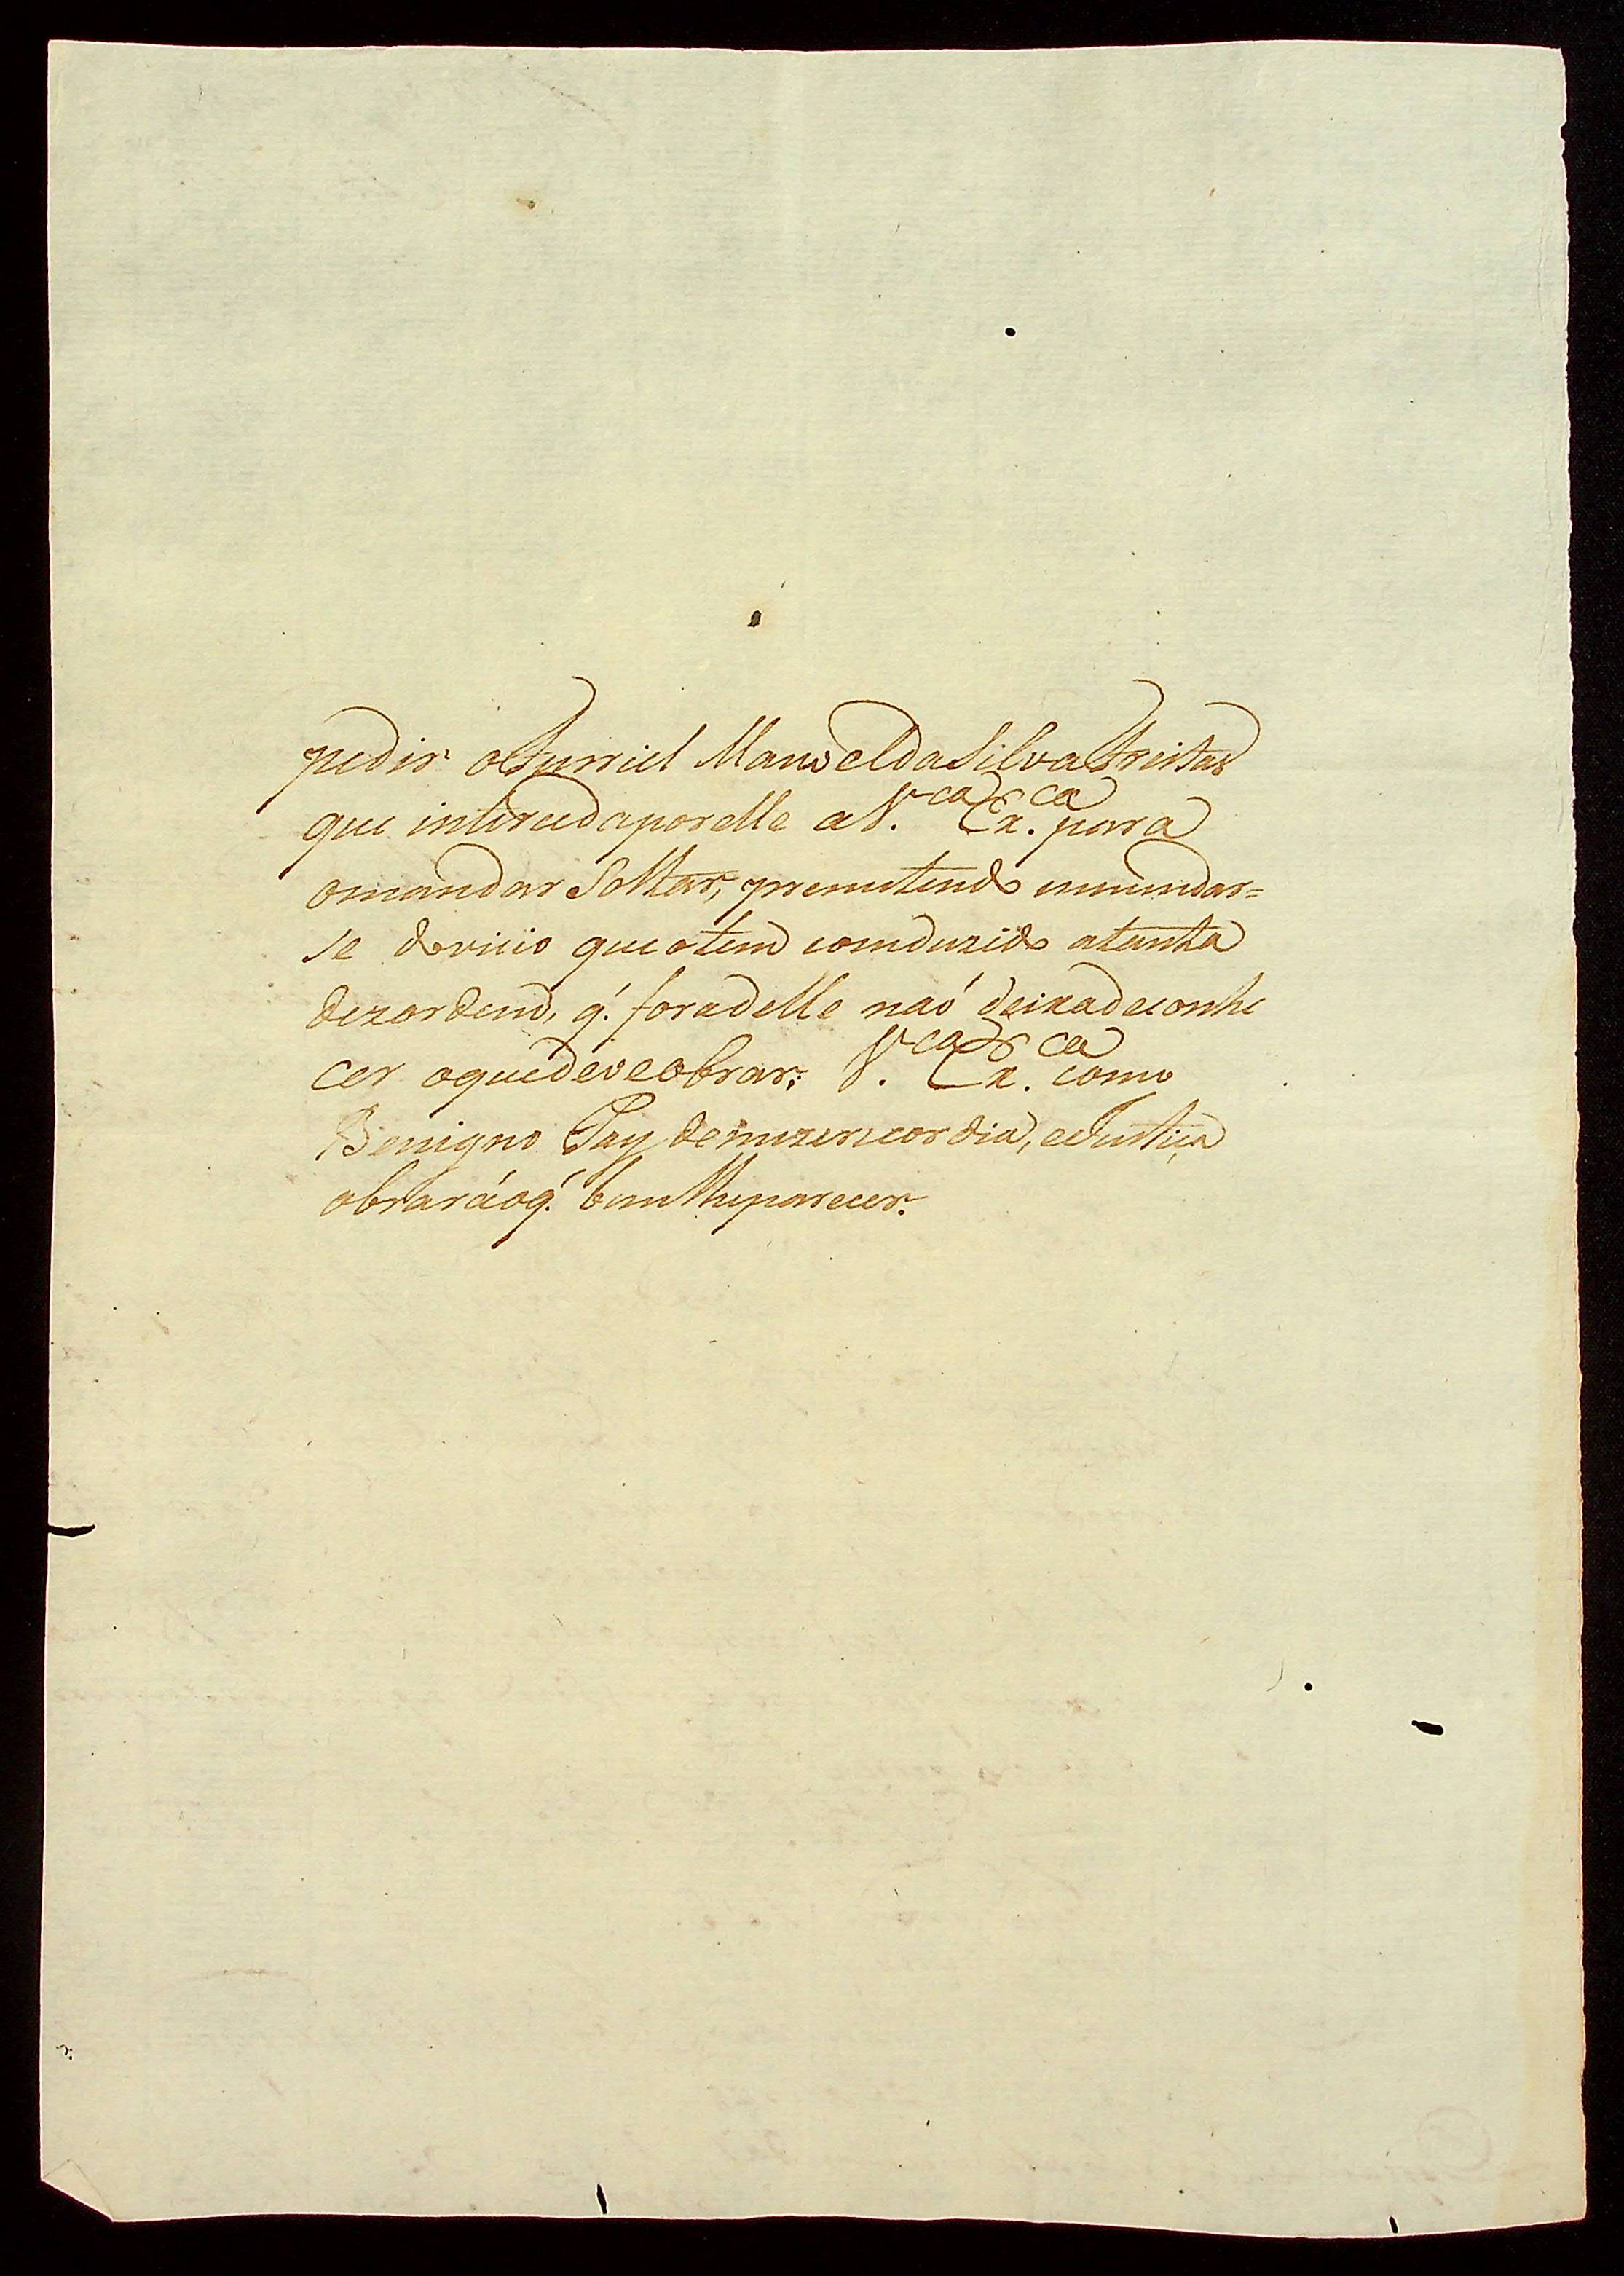 pedir o Furriel Manoel da Silva Freitas
que interceda por elle a V.ca Ex.ca para
o mandar Soltar, premetendo emmendar=
se do vicio que o tem comduzido a tanta
dezordem, q'. fora delle naõ deixa de conhe
cer o que deve obrar; V.ca Ex.ca como
Benigno Pay de mizericordia, e Justiça
obrará o q'. bem lhe parecer.